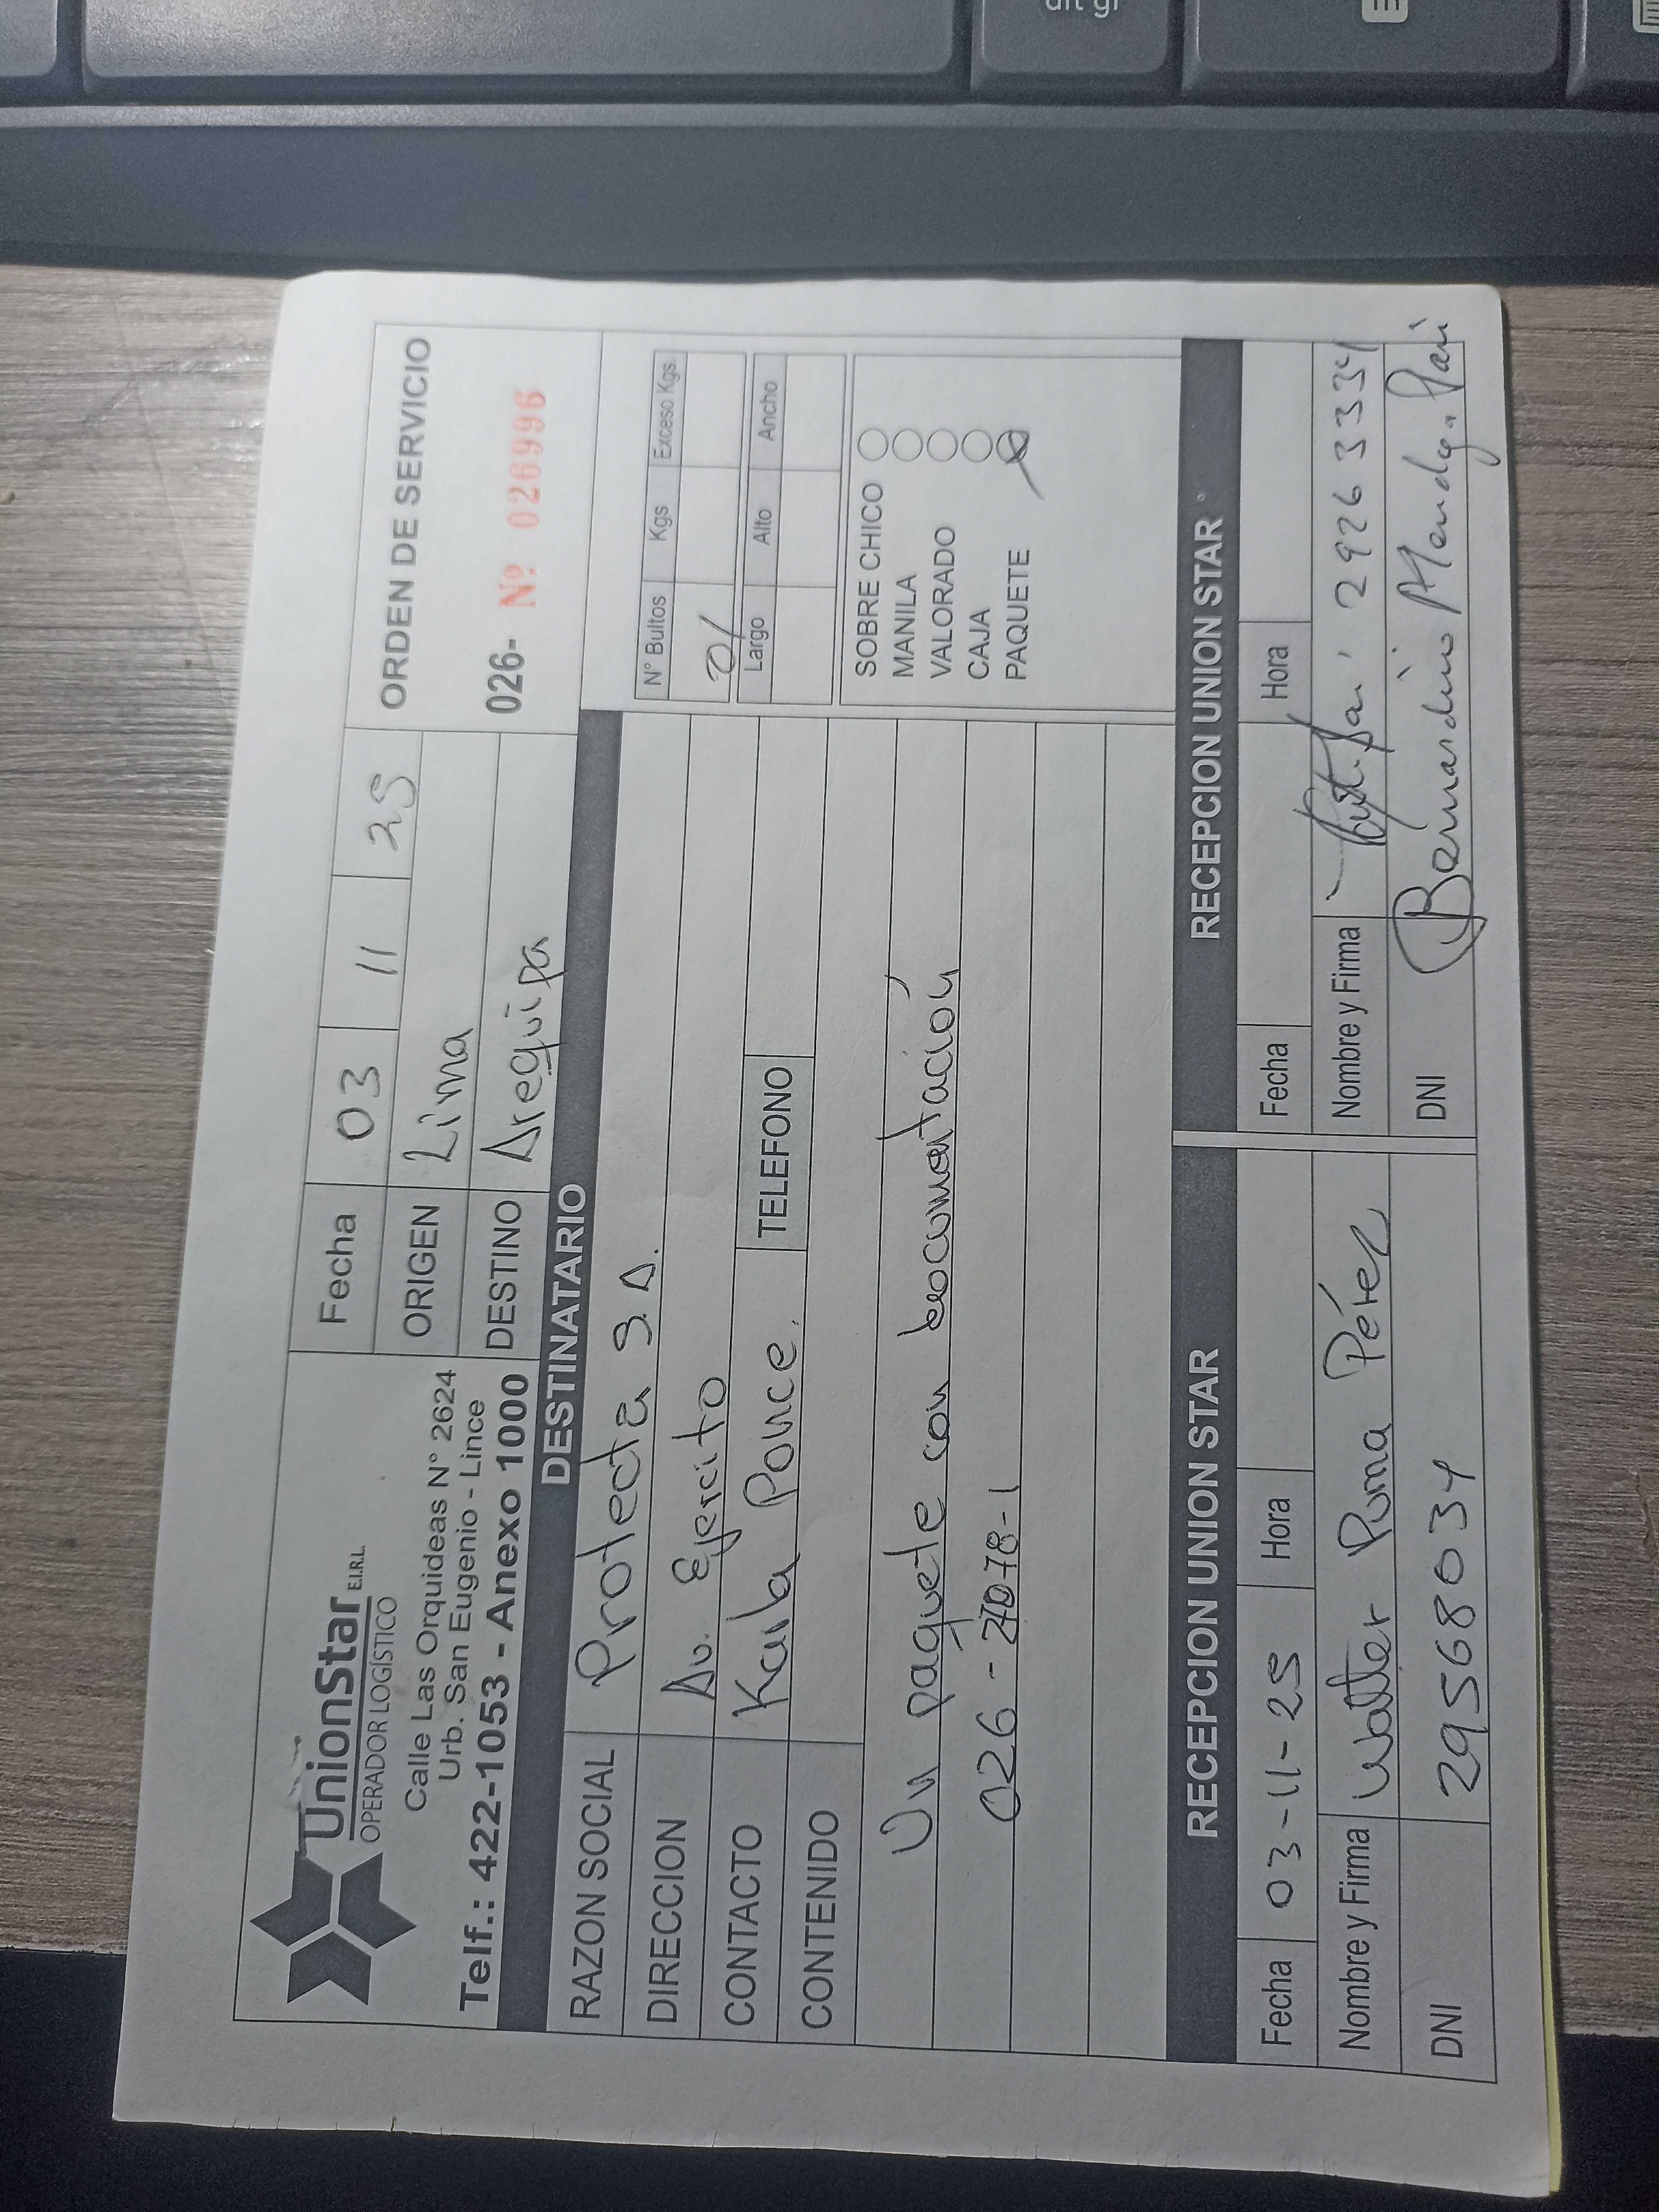 UnionStar E.I.R.L.
OPERADOR LOGÍSTICO
Calle Las Orquideas N° 2624
Urb. San Eugenio - Lince
Telf.: 422-1053 - Anexo 1000
Fecha 03 11 25
ORIGEN Lima
DESTINO Arequipa
ORDEN DE SERVICIO
026- Nº 026996
DESTINATARIO
RAZON SOCIAL Protecta S.A.
DIRECCION Av. Ejercito
CONTACTO Karla Ponce. TELEFONO
CONTENIDO
Un paquete con documentación
026-
N° Bultos Kgs Exceso Kgs
01
Largo Alto Ancho
SOBRE CHICO
MANILA
VALORADO
CAJA
PAQUETE
RECEPCION UNION STAR
Fecha 03-11-25 Hora
Nombre y Firma Walter Puma Pérez
DNI 29568034
RECEPCION UNION STAR
Fecha Hora
Nombre y Firma 29263334
DNI Bernardino